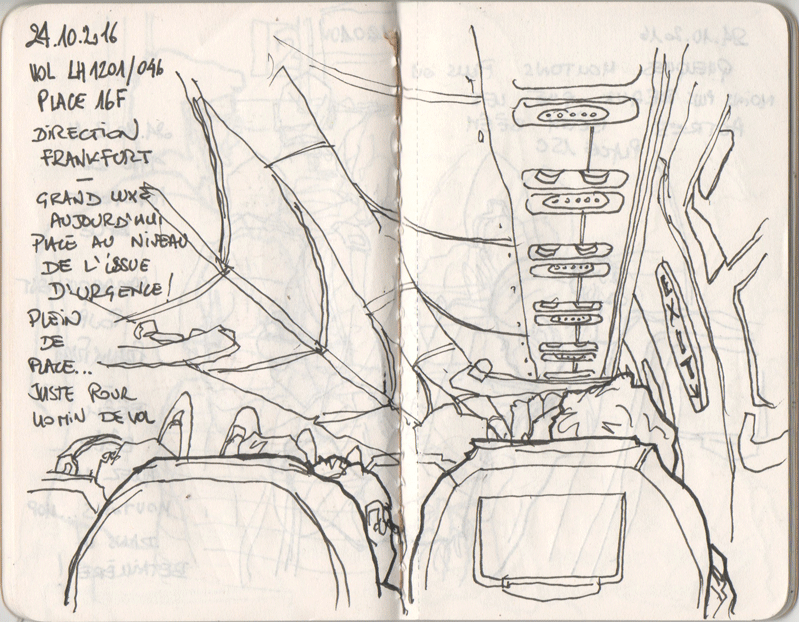 24.10.2016
VOL LH1201/046
PLACE 16F
DIRECTION
FRANKFURT
—
GRAND LUXE
AUJOURD'HUI
PLACE AU NIVEAU
DE L'ISSUE
D'URGENCE!
PLEIN
DE
PLACE...
JUSTE POUR
40 MIN DE VOL
EXIT